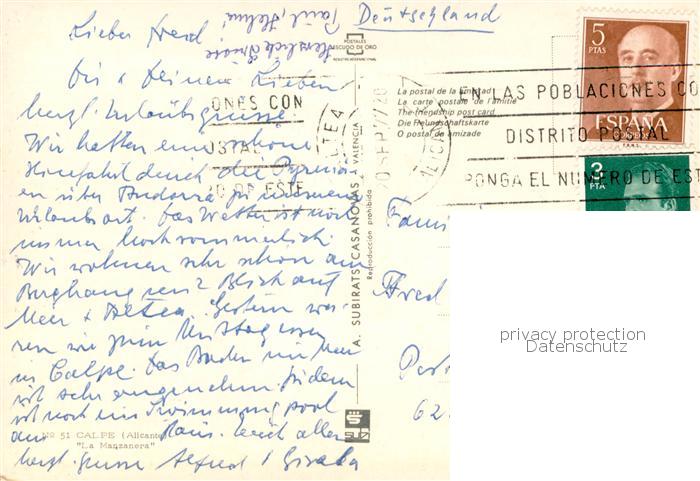 Deutschland
Herzliche Grüsse
Paul, Helma
Lieber Fred
Dir & Deinen Lieben
herzl. Urlaubsgrüsse.
Wir hatten eine schöne
Hinfahrt durch die Pyrenä-
en über Andorra zu unserem
Urlaubsort. Das Wetter ist noch
immer hochsommerlich
Wir wohnen sehr schön am
Berghang Blick auf
Meer & Altea. Gestern wa-
ren wir zum Mittagessen
in Calpe. Das Baden im Meer
ist sehr angenehm. Zudem
ist noch ein Swimmingpool
am Haus. Euch allen
herzl. Grüsse Alfred
Nº 51 CALPE (Alicante)
"La Manzanera"
POSTALES
ESCUDO DE ORO
La postal de la amistad
La carte postale de l'amitié
The friendship post card
Die Freundschaftskarte
O postal de amizade
A. SUBIRATS CASANOVAS - VALENCIA
Reproducción prohibida
subi
ONES CON
OSTAL
RO DE ESTE
ALTEA
20 SEP 77
EN LAS POBLACIONES CO
DISTRITO POSTAL
PONGA EL NUMERO DE EST
5
PTAS
ESPAÑA
3
PTA
Fam
Fred
Post
62
privacy protection
Datenschutz